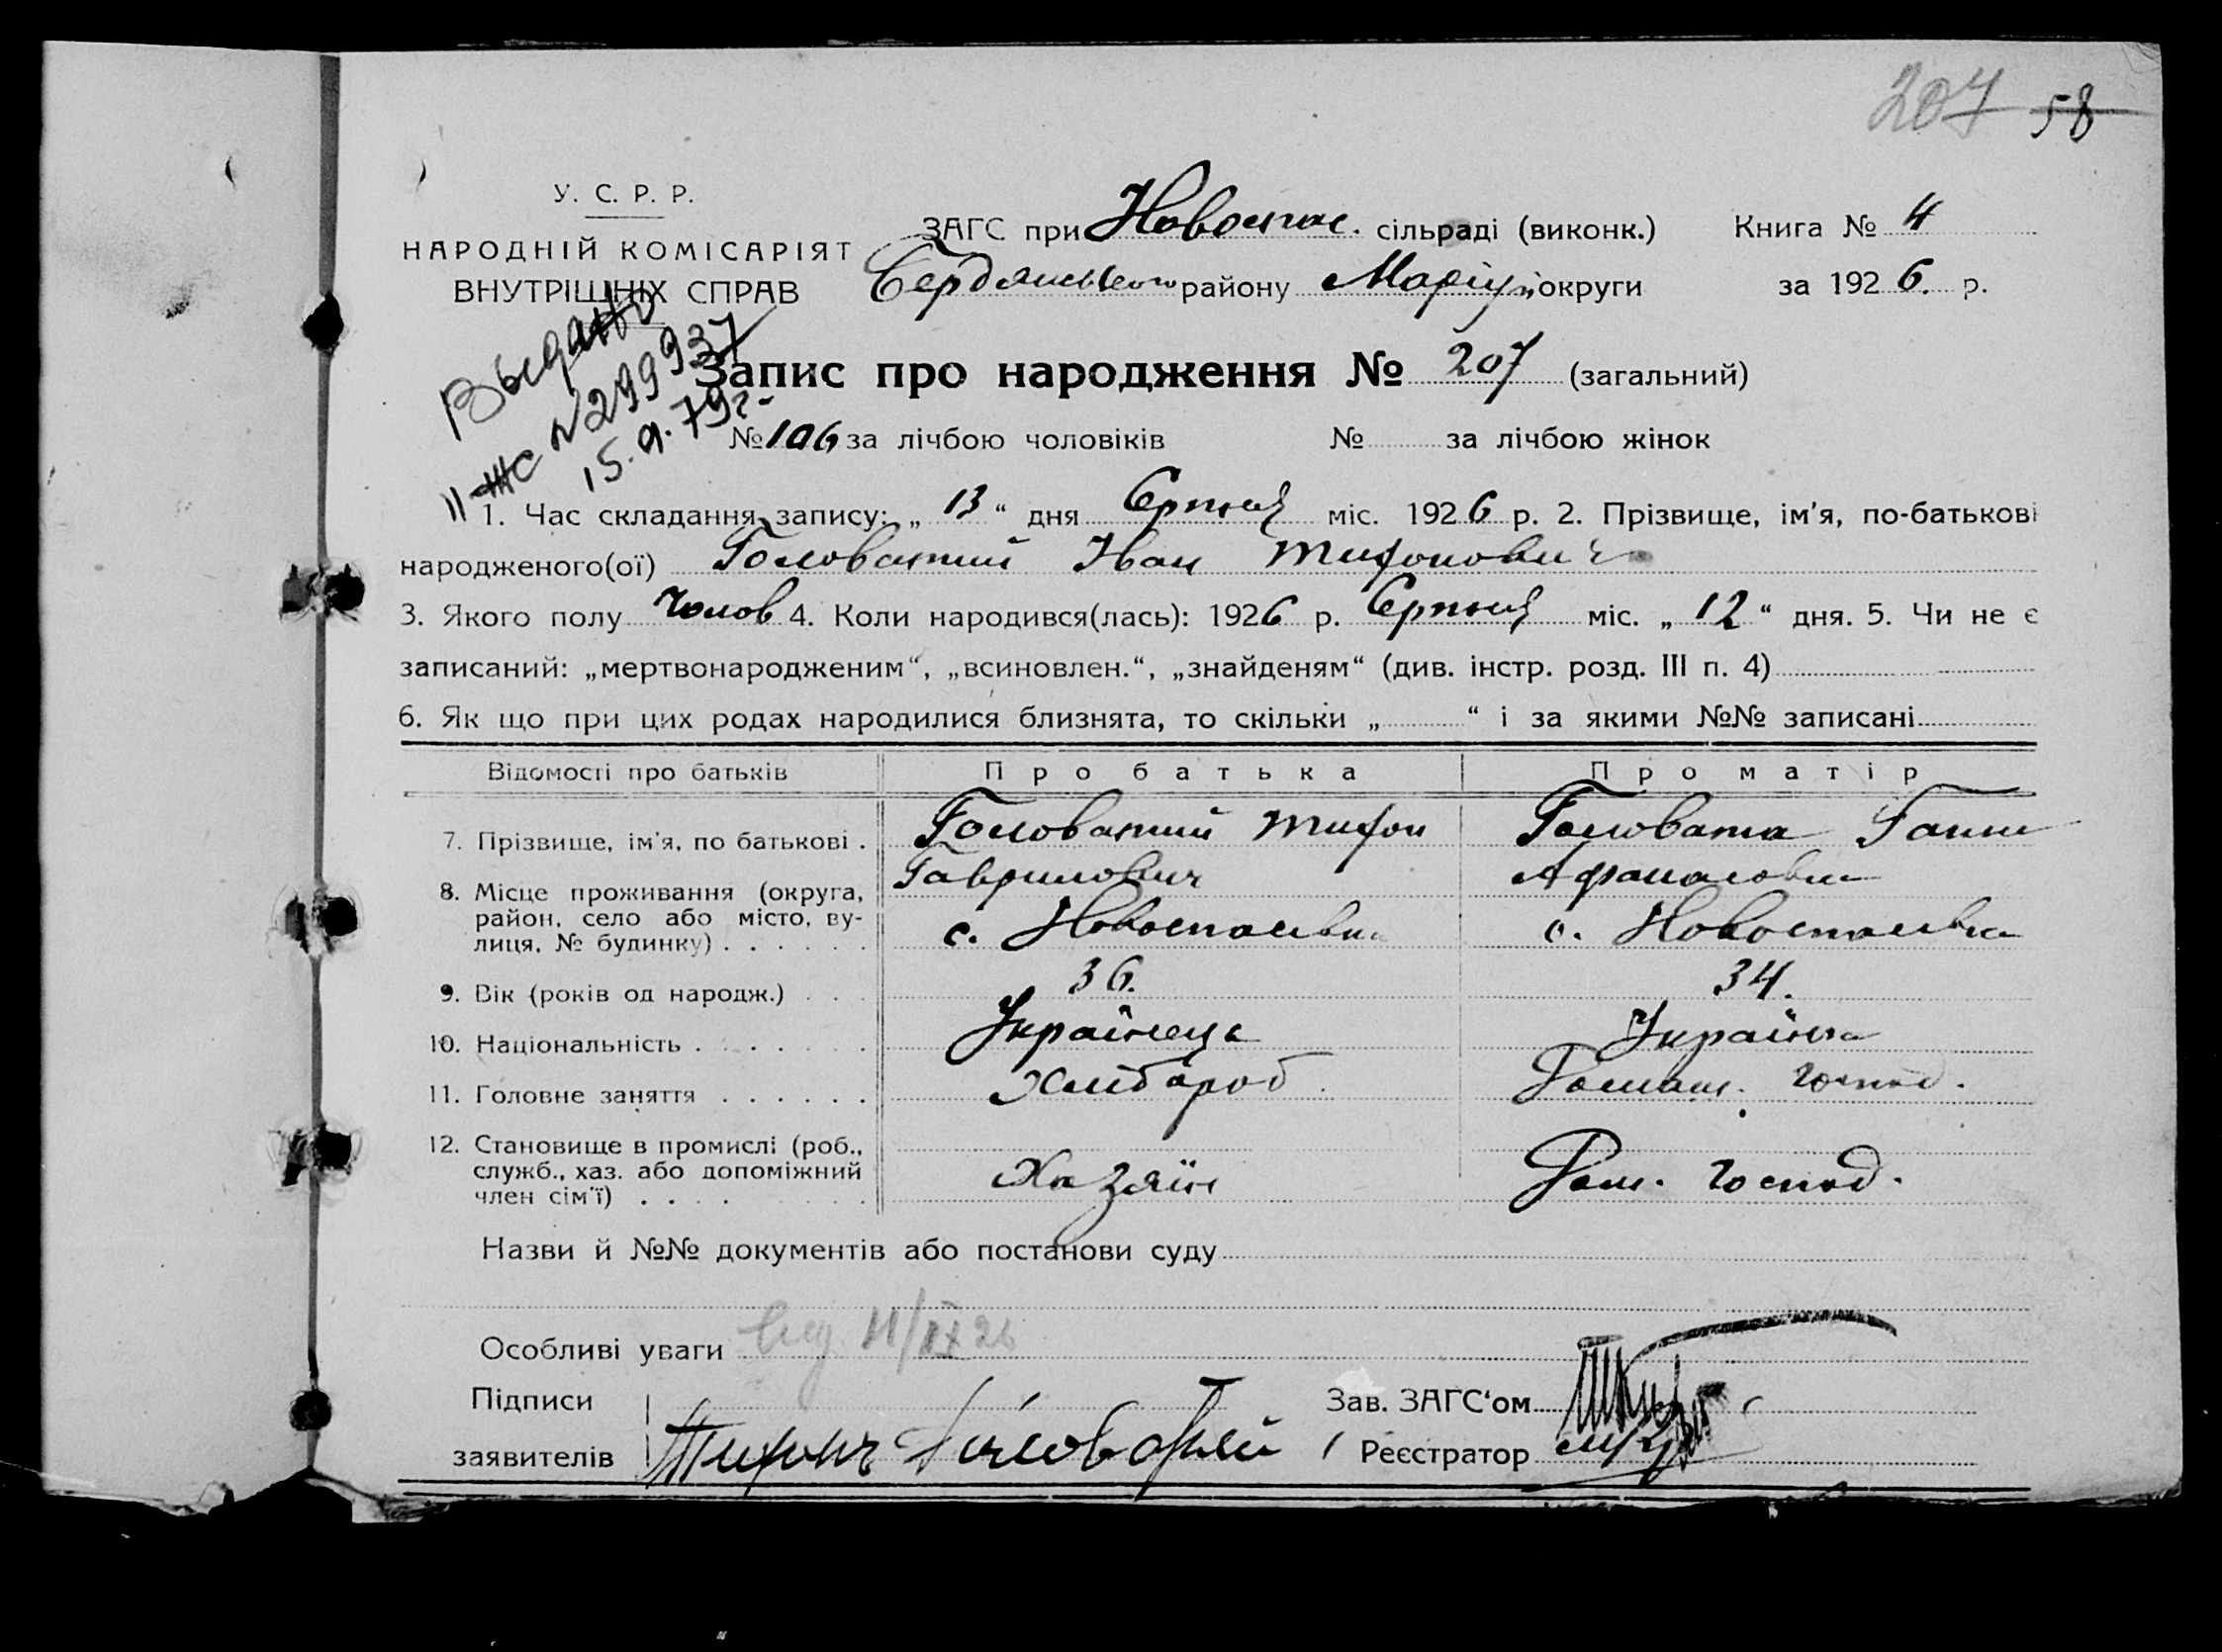 207 58
У. С. Р. Р.
НАРОДНІЙ КОМІСАРІЯТ
ВНУТРІШНІХ СПРАВ
ЗАГС при Новоспас. сільраді (виконк.) Книга № 4
Бердянського району Маріуп. округи за 1926. р.
Выдано
II-ЖС №299937
15.9.79г.
Запис про народження № 207 (загальний)
№ 106 за лічбою чоловіків № за лічбою жінок
1. Час складання запису: „ 13 “ дня Серпня міс. 1926 р. 2. Прізвище, ім'я, по-батькові
народженого(ої) Головатий Іван Тифонович
3. Якого полу Чолов 4. Коли народився(лась): 1926 р. Серпня міс. „ 12 “ дня. 5. Чи не є
записаний: „мертвонародженим“, „всиновлен.“, „знайденям“ (див. інстр. розд. III п. 4)
6. Як що при цих родах народилися близнята, то скільки „ “ і за якими №№ записані
Відомості про батьків Про батька Про матір
7. Прізвище, ім'я, по батькові . Головатий Тифон Гаврилович Головата Ганна Афанасовна
8. Місце проживання (округа,
район, село або місто, ву-
лиця, № будинку) . . . . . . с. Новоспасівка с. Новоспасівка
9. Вік (років од народж.) . . . 36. 34.
10. Національність . . . . . . . Українець Українка
11. Головне заняття . . . . . . Хлібороб Домаш. господ.
12. Становище в промислі (роб.,
служб., хаз. або допоміжний
член сім'ї) . . . . Хазяїн Дом. господ.
Назви й №№ документів або постанови суду
Особливі уваги 11/IX 26
Підписи
заявителів Тихон Головатый
Зав. ЗАГС'ом
Реєстратор